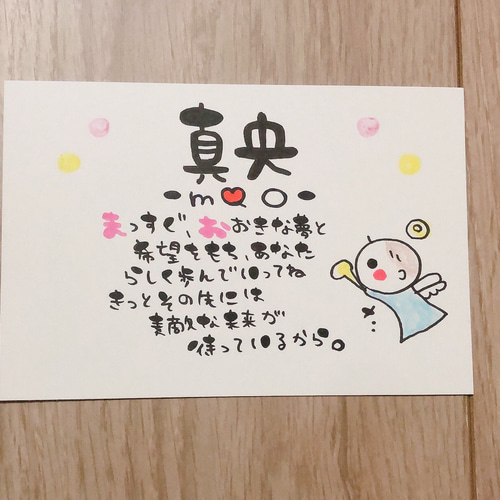 真央
-m❤o-
まっすぐ、おおきな夢と
希望をもち、あなた
らしく歩んで行ってね
きっとその先には
素敵な未来が
待っているから。